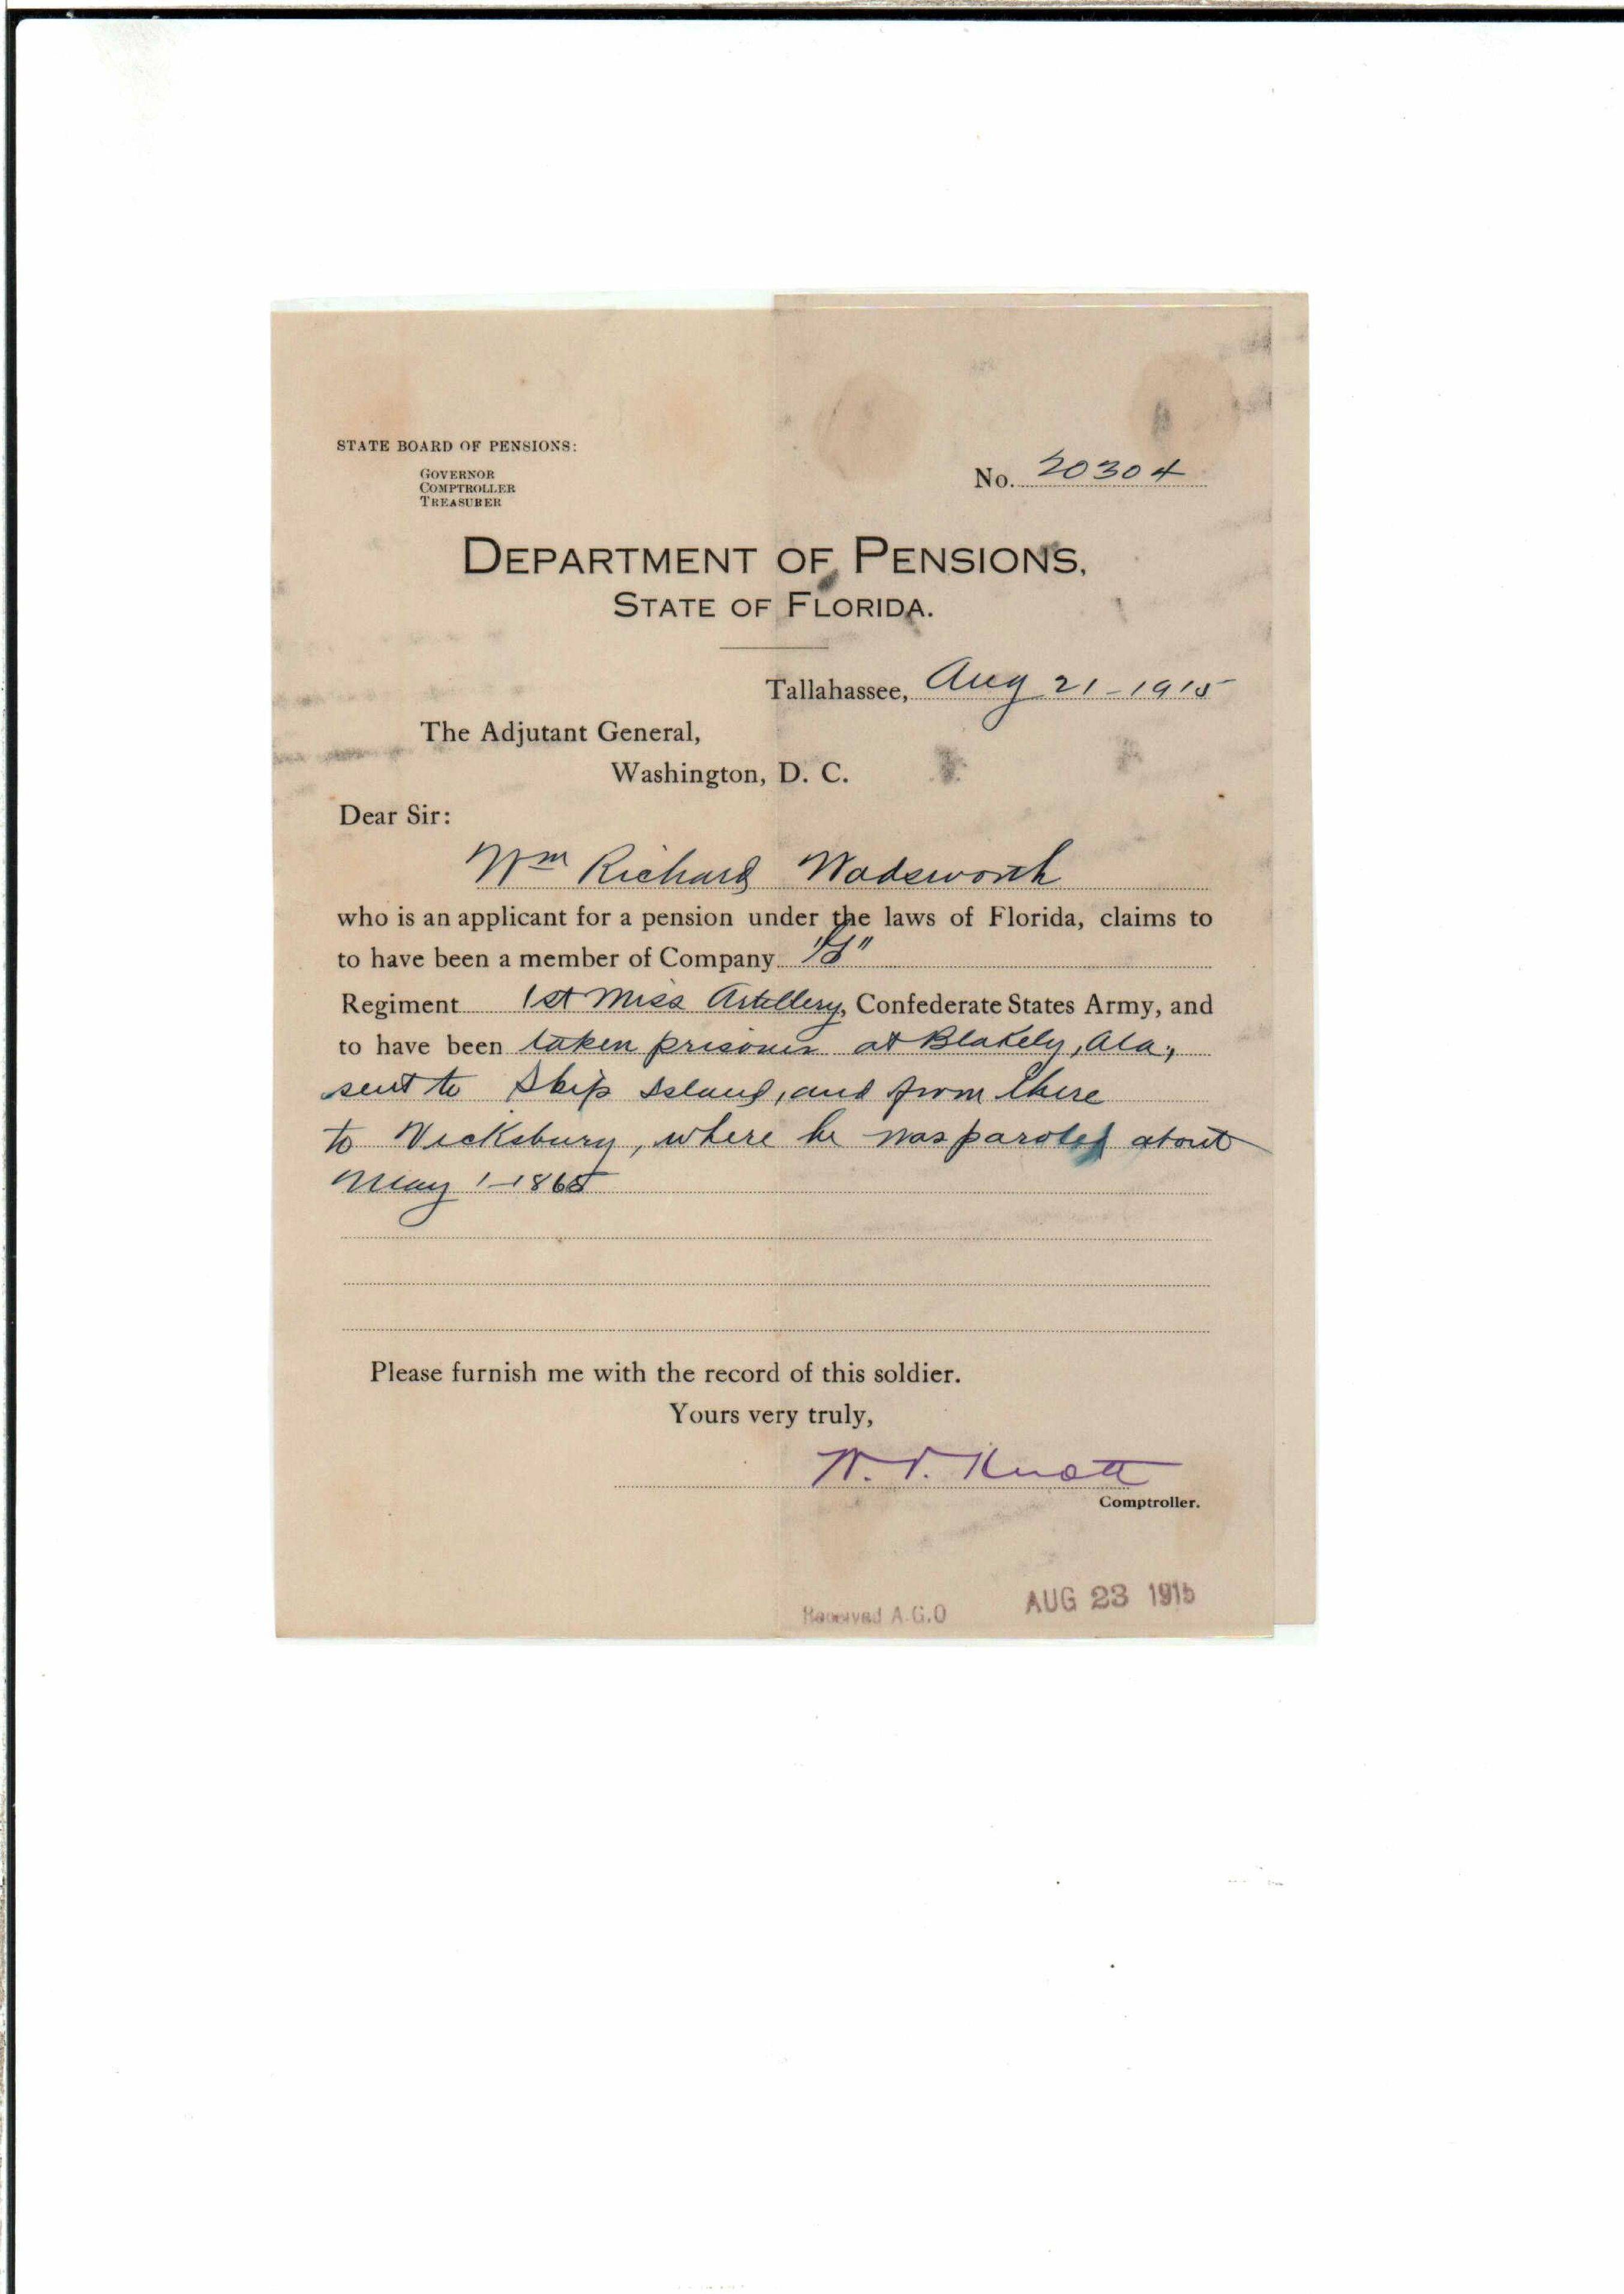 STATE BOARD OF PENSIONS:
GOVERNOR
COMPTROLLER
TREASURER
No. 20304
DEPARTMENT OF PENSIONS,
STATE OF FLORIDA.
Tallahassee, Aug 21-1915
The Adjutant General,
Washington, D. C.
Dear Sir:
Wm Richard Wadsworth
who is an applicant for a pension under the laws of Florida, claims to
to have been a member of Company
Regiment 1st Miss Artillery, Confederate States Army, and
to have been taken prisoner at Blakely, Ala.,
sent to Ship Island, and from there
to Vicksburg, where he was paroled about
May 1-1865
Please furnish me with the record of this soldier.
Yours very truly,
W. V. Knott
Comptroller.
Received A.G.O AUG 23 1915